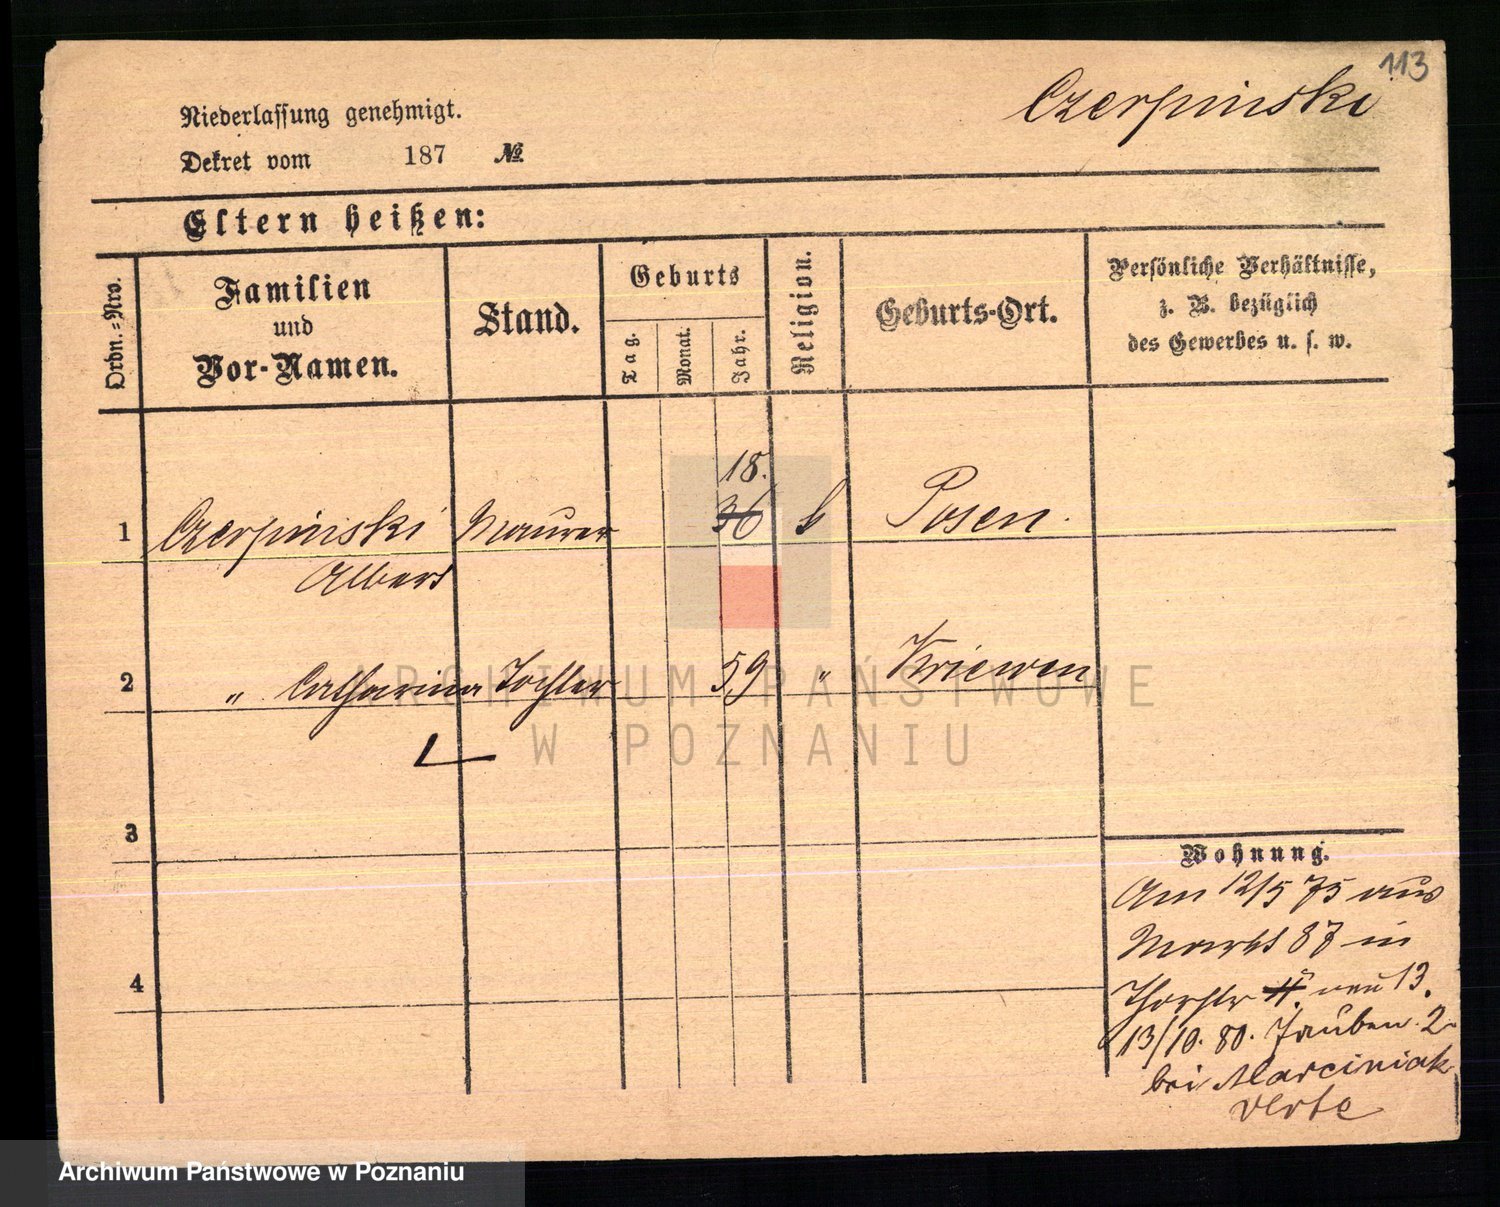 113
Czerpinski
Niederlassung genehmigt.
Dekret vom 187 №
Eltern heißen:
Ordn.-Nro.
Familien
und
Vor-Namen.
Stand.
Geburts
Tag.
Monat.
Jahr.
Religion.
Geburts-Ort.
Persönliche Verhältnisse,
z. B. bezüglich
des Gewerbes u. s. w.
18.
1 Czerpinski Maurer 36 k Posen.
Albert
2 " Catharina Tochter 59 " Kriewen
3
4
Wohnung.
Am 12/5 75 aus
Markt 87 in
Thorstr neu 13.
13/10. 80. Tauben. 2
bei Marciniak
verte
ARCHIWUM PAŃSTWOWE
W POZNANIU
Archiwum Państwowe w Poznaniu